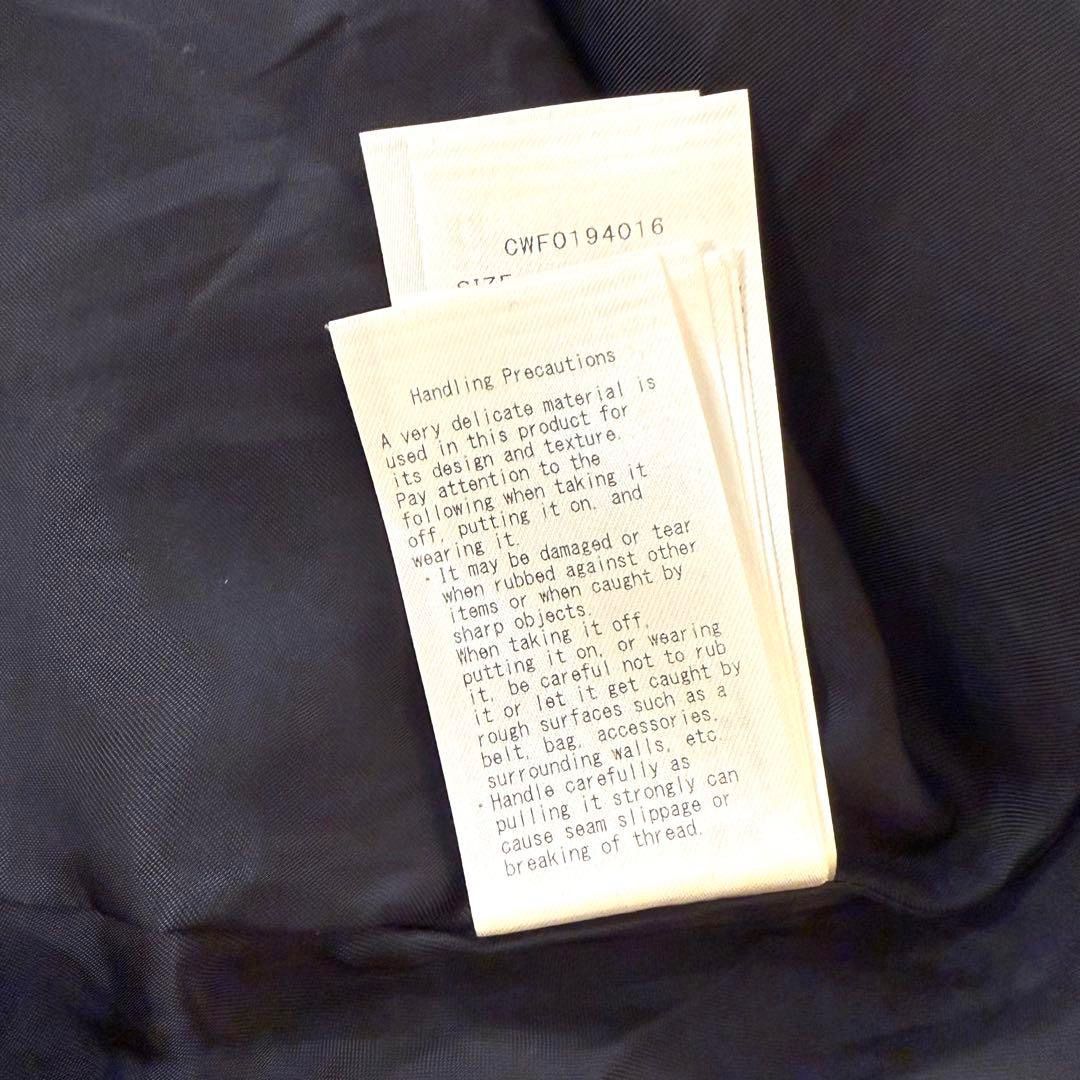 CWF0194016
SIZE
Handling Precautions
A very delicate material is
used in this product for
its design and texture.
Pay attention to the
following when taking it
off, putting it on, and
wearing it.
・It may be damaged or tear
when rubbed against other
items or when caught by
sharp objects.
When taking it off,
putting it on, or wearing
it, be careful not to rub
it or let it get caught by
rough surfaces such as a
belt, bag, accessories,
surrounding walls, etc.
・Handle carefully as
pulling it strongly can
cause seam slippage or
breaking of thread.